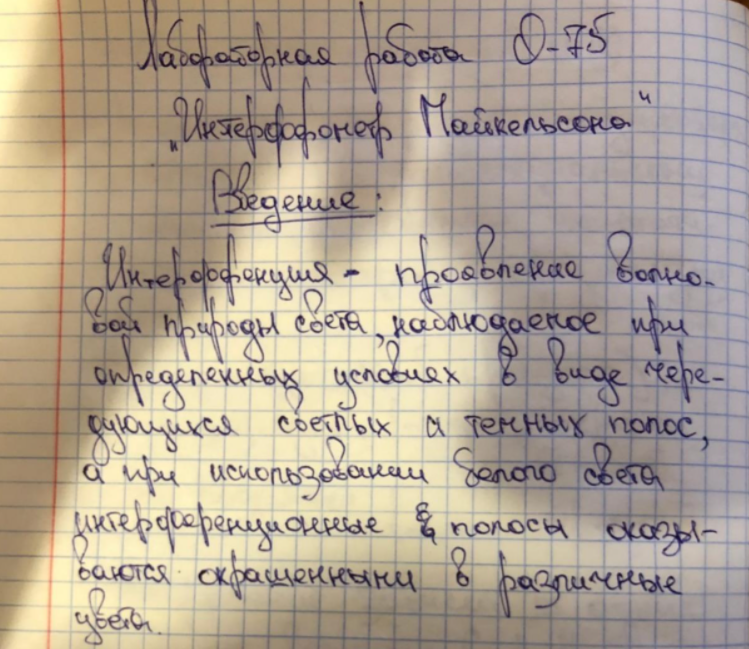 Лабораторная работа О-75
„Интерферометр Майкельсона"
Введение:
Интерференция - проявление волно-
вой природы света, наблюдаемое при
определенных условиях в виде чере-
дующихся светлых и темных полос,
а при использовании белого света
интерференционные полосы оказы-
ваются окрашенными в различные
цвета.